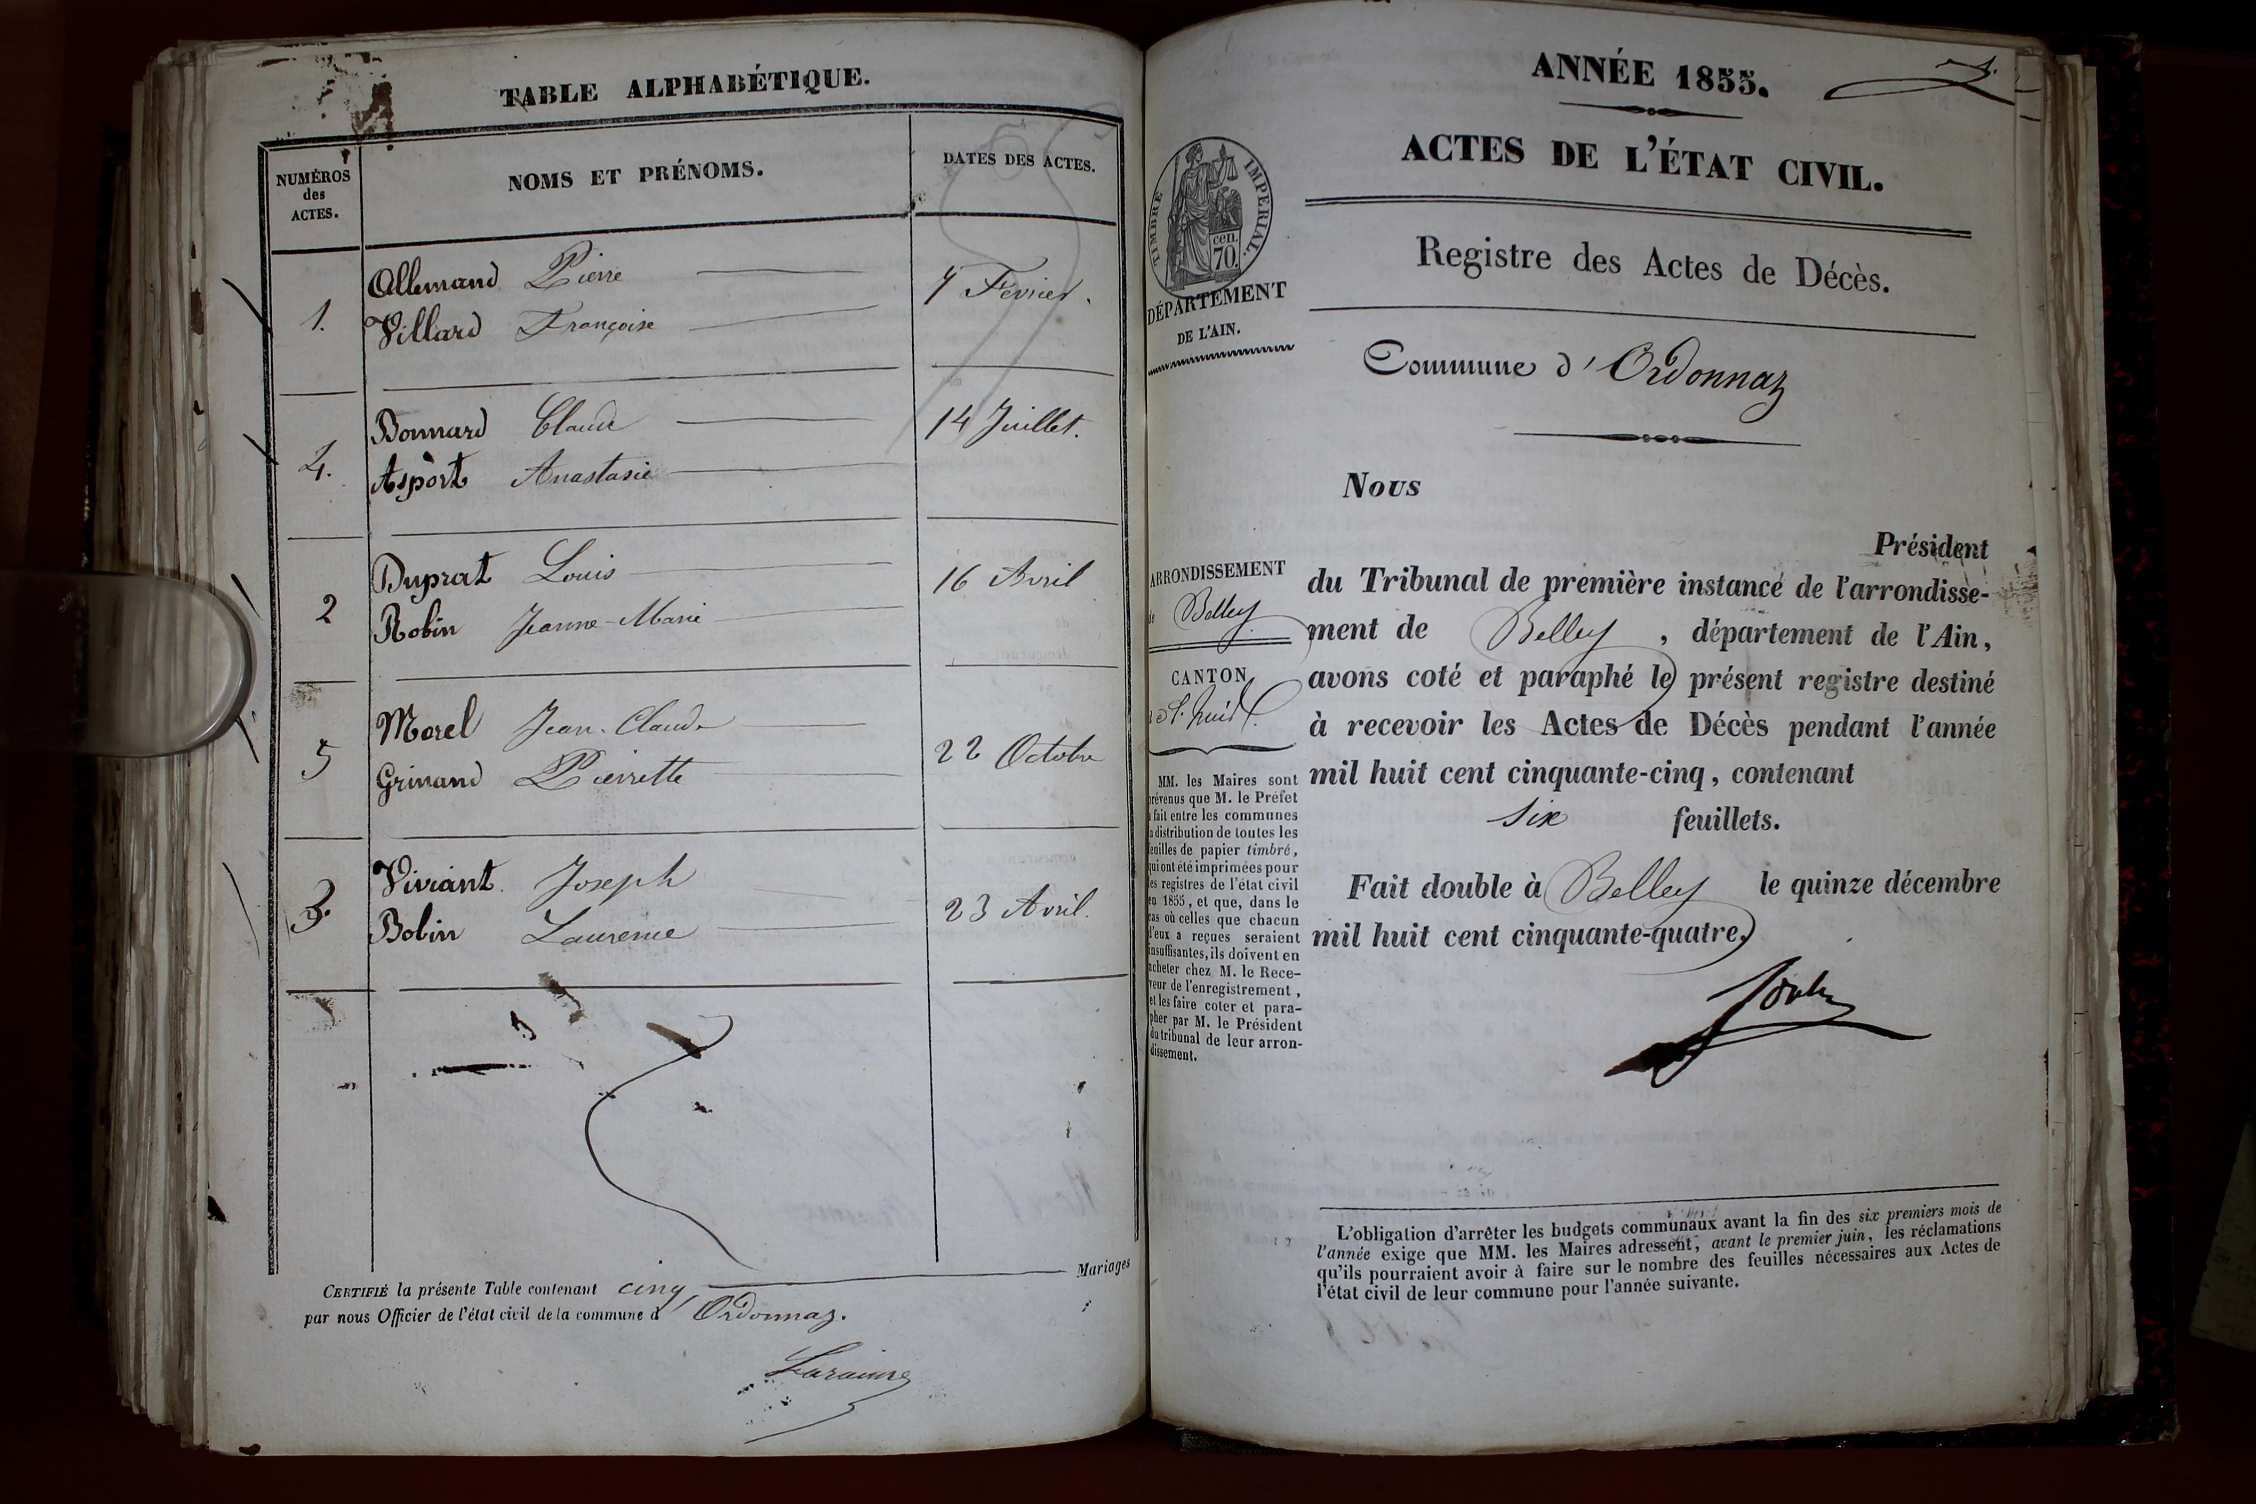 TABLE ALPHABÉTIQUE.
NUMÉROS
des
ACTES.
NOMS ET PRÉNOMS.
DATES DES ACTES.
1.
Allemand Pierre
Villard Françoise
7 Février.
4.
Bonnard Claude
Asport Anastasie
14 Juillet.
2
Duprat Louis
Robin Jeanne-Marie
16 Avril
5
Morel Jean-Claude
Grinand Pierrette
22 Octobre
3.
Viviant Joseph
Bobin Laurence
23 Avril.
CERTIFIÉ la présente Table contenant cinq Mariages
par nous Officier de l'état civil de la commune d'Ordonnaz.
ANNÉE 1855.
ACTES DE L'ÉTAT CIVIL.
TIMBRE IMPERIAL.
cen.
70.
DÉPARTEMENT
DE L'AIN.
Registre des Actes de Décès.
Commune d'Ordonnaz
ARRONDISSEMENT
de Belley
CANTON
MM. les Maires sont
prévenus que M. le Préfet
a fait entre les communes
la distribution de toutes les
feuilles de papier timbré,
qui ont été imprimées pour
les registres de l'état civil
en 1855, et que, dans le
cas où celles que chacun
d'eux a reçues seraient
insuffisantes, ils doivent en
acheter chez M. le Rece-
veur de l'enregistrement,
et les faire coter et para-
pher par M. le Président
du tribunal de leur arron-
dissement.
Nous
Président
du Tribunal de première instance de l'arrondisse-
ment de Belley, département de l'Ain,
avons coté et paraphé le présent registre destiné
à recevoir les Actes de Décès pendant l'année
mil huit cent cinquante-cinq, contenant
six feuillets.
Fait double à Belley le quinze décembre
mil huit cent cinquante-quatre.
L'obligation d'arrêter les budgets communaux avant la fin des six premiers mois de
l'année exige que MM. les Maires adressent, avant le premier juin, les réclamations
qu'ils pourraient avoir à faire sur le nombre des feuilles nécessaires aux Actes de
l'état civil de leur commune pour l'année suivante.